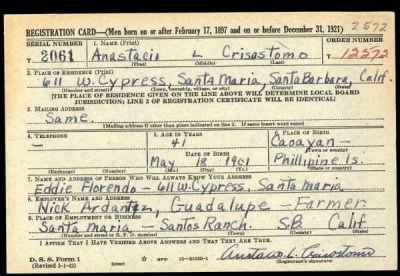 REGISTRATION CARD—(Men born on or after February 17, 1897 and on or before December 31, 1921) 2572
SERIAL NUMBER 1. NAME (Print) ORDER NUMBER
T 2061 Anastacio L Crisostomo T 12572
(First) (Middle) (Last)
2. PLACE OF RESIDENCE (Print)
611 W. Cypress, Santa Maria, Santa Barbara, Calif.
(Number and street) (Town, township, village, or city) (County) (State)
[THE PLACE OF RESIDENCE GIVEN ON THE LINE ABOVE WILL DETERMINE LOCAL BOARD
JURISDICTION; LINE 2 OF REGISTRATION CERTIFICATE WILL BE IDENTICAL]
3. MAILING ADDRESS
Same
[Mailing address if other than place indicated on line 2. If same insert word same]
4. TELEPHONE 5. AGE IN YEARS 6. PLACE OF BIRTH
— 41 Caoayan—
DATE OF BIRTH (Town or county)
May 18 1901 Phillipine Is.
(Mo.) (Day) (Yr.) (State or country)
7. NAME AND ADDRESS OF PERSON WHO WILL ALWAYS KNOW YOUR ADDRESS
Eddie Florendo — 611 W. Cypress, Santa Maria
8. EMPLOYER'S NAME AND ADDRESS
Nick Ardantez, Guadalupe — Farmer
9. PLACE OF EMPLOYMENT OR BUSINESS
Santa Maria — Santos Ranch. S.B. Calif
(Number and street or R. F. D. number) (Town) (County) (State)
I AFFIRM THAT I HAVE VERIFIED ABOVE ANSWERS AND THAT THEY ARE TRUE.
D. S. S. Form 1
(Revised 1-1-42) (over) GPO Anastacio L. Crisostomo